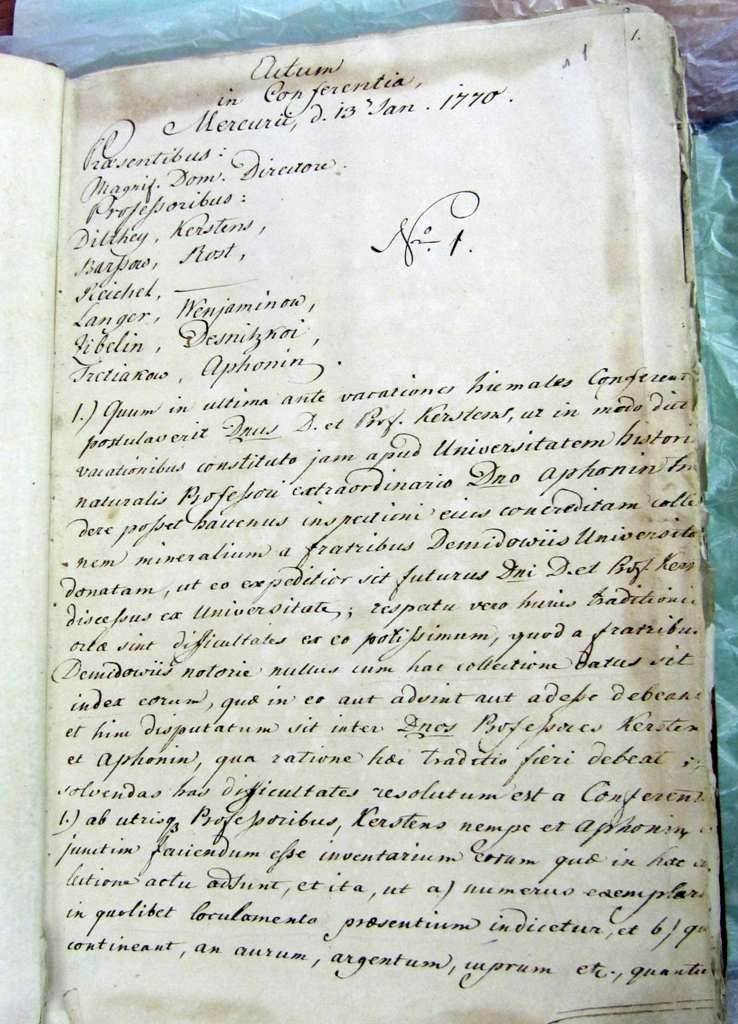 1.
1
Actum
in Conferentia,
Mercurii, d. 13 Jan. 1770.
Præsentibus:
Magnif. Dom. Directore.
Professoribus:
Dilthey, Kerstens,
Barssow, Rost,
Reichel,
Langer, Wenjaminow,
Sibelin, Desnitzkoi,
Tretiakow, Aphonin.
No. 1.
1.) Quum in ultima ante vacationes hiemales Conferen
postulaverit Dnus D. et Prof. Kerstens, ut in modo dic
vacationibus constituto jam apud Universitatem histori
naturalis Professori extraordinario Dno Aphonin tra
dere posset hactenus inspectioni eius concreditam colle
nem mineralium a fratribus Demidowiis Universita
donatam, ut eo expeditior sit futurus Dni D. et Prof. Kers
discessus ex Universitate; respectu vero huius traditioni
ortæ sint difficultates ex eo potissimum, quod a fratribu
Demidowiis notorie nullus cum hac collectione datus sit
index eorum, quæ in eo aut adsint aut adesse debean
et hinc disputatum sit inter Dnos Professores Kersten
et Aphonin, qua ratione hæc traditio fieri debeat;
solvendas has difficultates resolutum est a Conferen
1.) ab utrisq Professoribus, Kerstens nempe et Aphonin,
junctim faciendum esse inventarium eorum quæ in hac
lectione actu adsunt, et ita, ut a) numerus exemplar
in quolibet loculamento præsentium indicetur, et b) qu
contineant, an aurum, argentum, cuprum etc., quantu